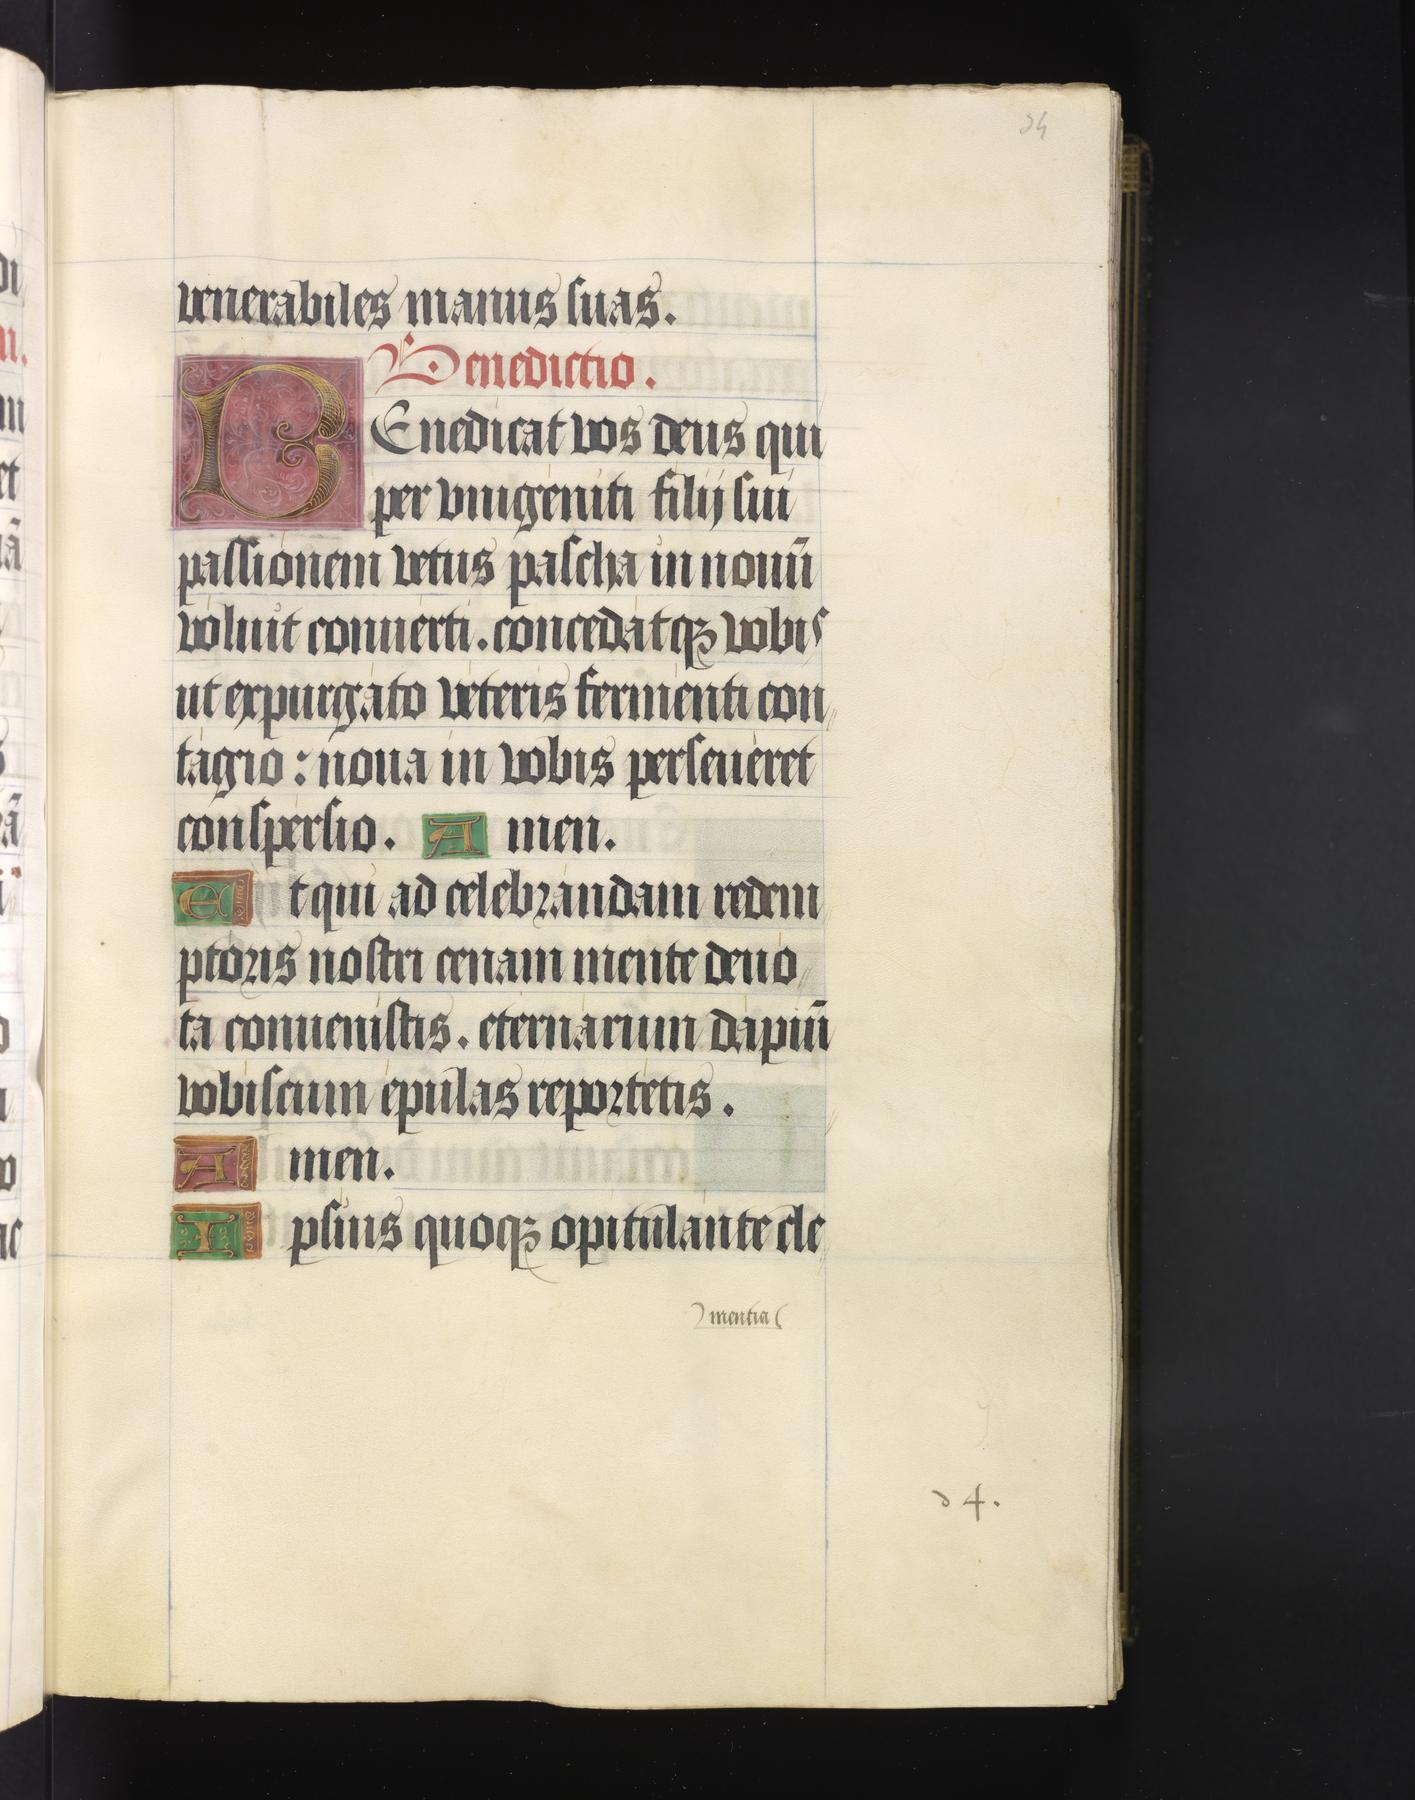 34
venerabiles manus suas.
Benedictio.
BEnedicat vos deus qui
per vnigeniti filij sui
passionem vetus pascha in nouū
voluit conuerti. concedatqꝫ vobis
ut expurgato veteris fermenti con
tagio: noua in vobis perseueret
conspersio. Amen.
Et qui ad celebrandam redem
ptoris nostri cenam mente deuo
ta conuenistis. eternarum dapiū
vobiscum epulas reportetis.
Amen.
Ipsius quoqꝫ opitulante cle
mentia